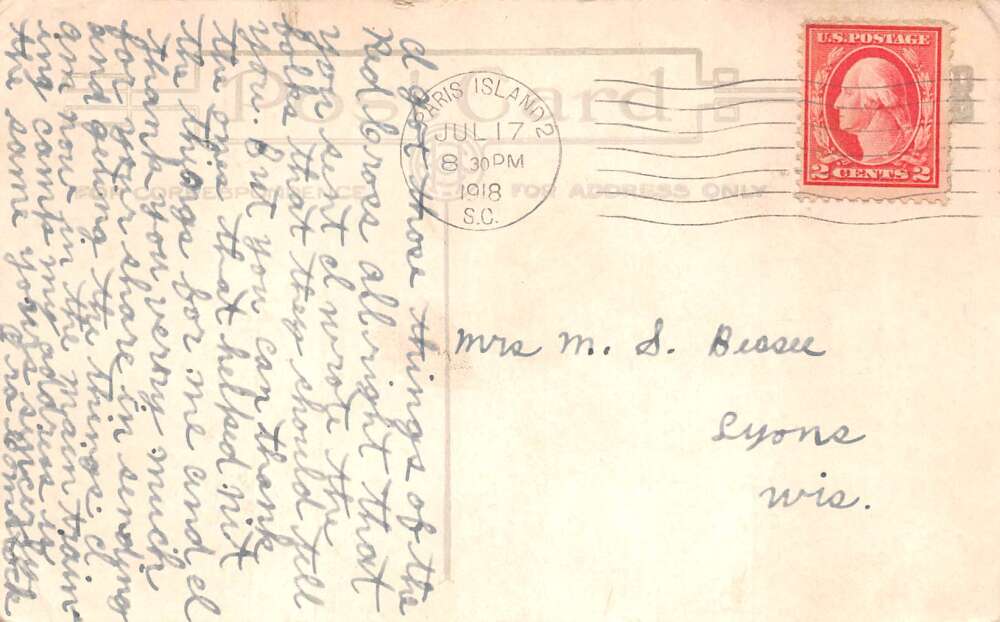 Post Card
FOR CORRESPONDENCE
FOR ADDRESS ONLY
PARIS ISLAND 2
JUL 17
8 30 PM
1918
S.C.
U.S. POSTAGE
2 CENTS 2
Mrs M. S.
Lyons
Wis.
I got those things of the
Red Cross all right that
you sent I wrote the
folks that they should tell
you. But you can thank
the ones that helped nit
the things for me and I
thank you very much
for your share in sendyng
and geting the things. I
am now in the main train
ing camp my address is
the same yours sincerly
Comstock